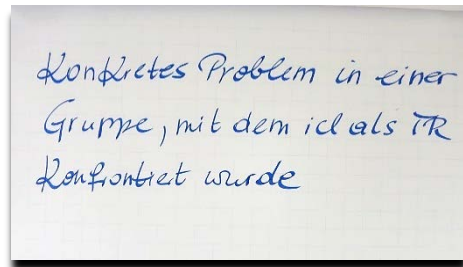 Konkretes Problem in einer
Gruppe, mit dem ich als TR
Konfrontiert wurde